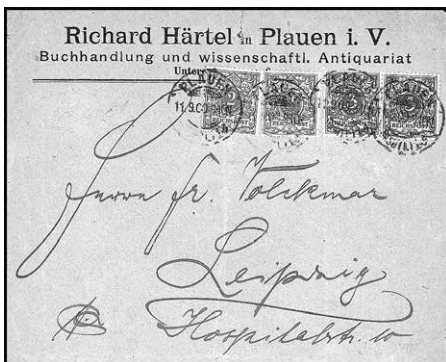 Richard Härtel in Plauen i. V.
Buchhandlung und wissenschaftl. Antiquariat
PLAUEN
Herrn Fr. Volckmar
Leipzig
Hospitalstr. 10